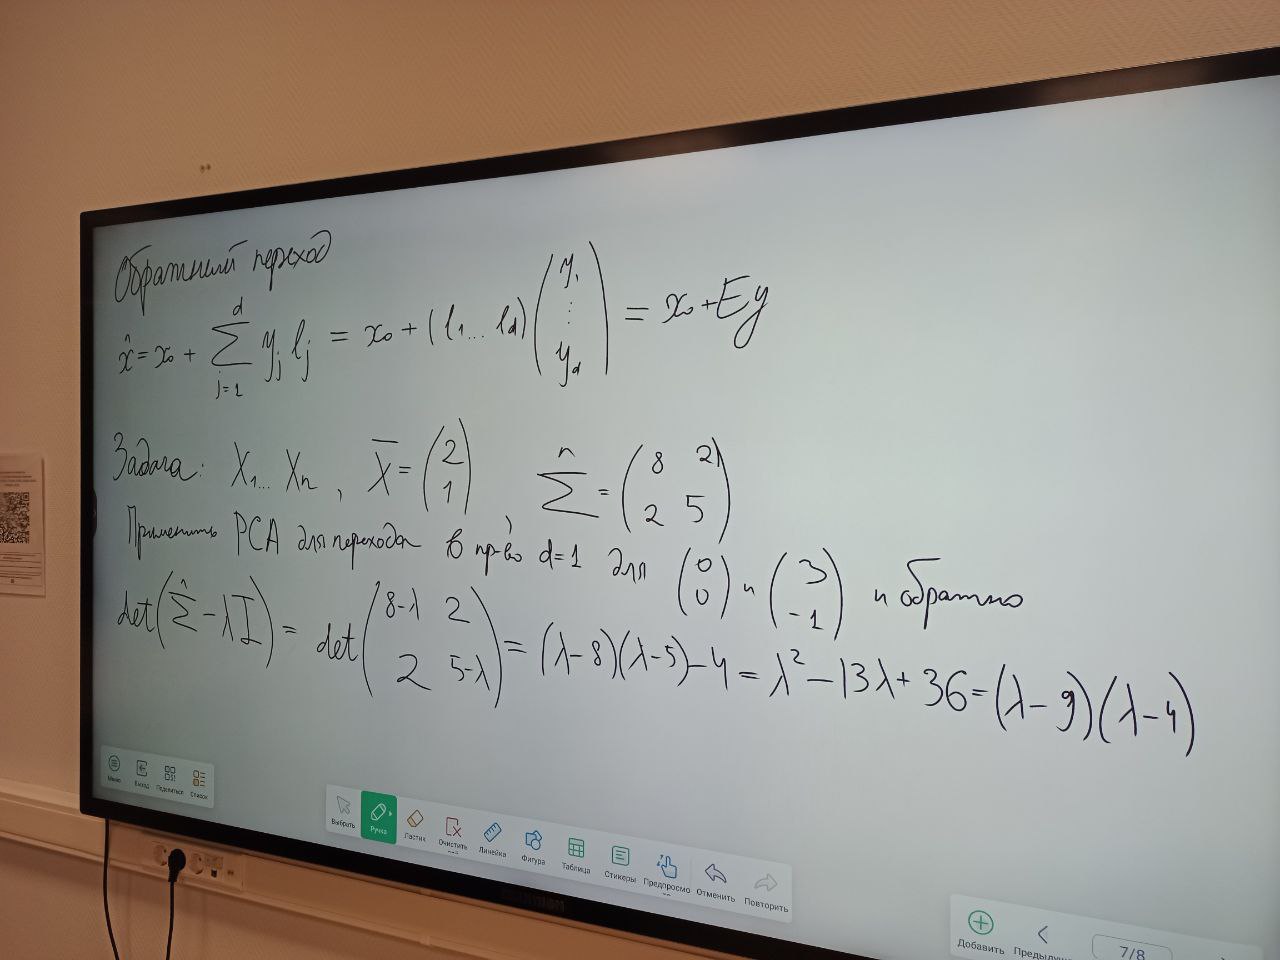 Обратный переход
x̂ = x₀ + Σ_{j=1}^{d} y_j l_j = x₀ + (l₁ ... l_d) (y₁ ⋮ y_d) = x₀ + Ey
Задача: X₁ ... Xₙ , X̄ = (2 1) , Σ̂ = (8 2 2 5)
Применить PCA для перехода в пр-во d=1 для (0 0) и (3 -1) и обратно
det(Σ̂ - λI) = det(8-λ 2 2 5-λ) = (λ-8)(λ-5)-4 = λ²-13λ+36 = (λ-9)(λ-4)
Меню Выход Поделиться Список
Выбрать Ручка Ластик Очистить Линейка Фигура Таблица Стикеры Предпросмо Отменить Повторить
Добавить Предыдущ 7/8